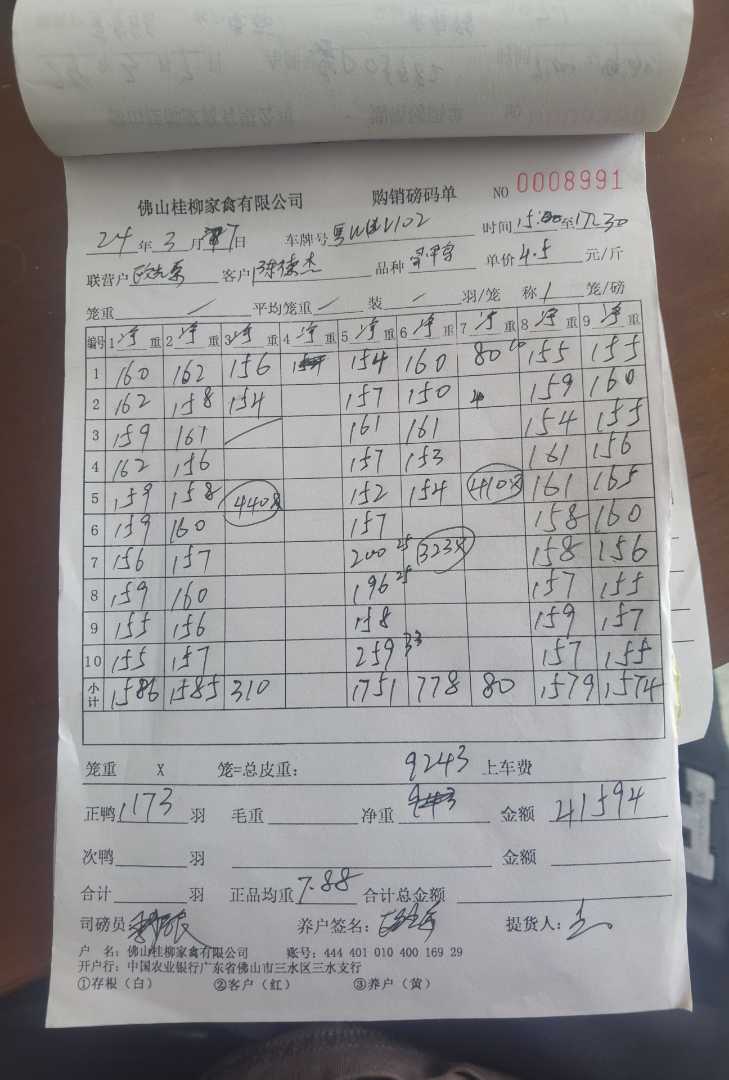 佛山桂柳家禽有限公司 购销磅码单 NO 0008991
24年3月7日 车牌号 时间15:00至17:30
联营户 客户 徐德杰 品种 单价4.5元/斤
笼重 / 平均笼重 / 装 / 羽/笼 称 / 笼/磅
编号 1净重 2净重 3净重 4净重 5净重 6净重 7净重 8净重 9净重
1 160 162 156 154 160 80 155 155
2 162 158 154 157 150 159 160
3 159 161 / 161 161 154 155
4 162 156 157 153 161 156
5 159 158 440只 152 154 410只 161 165
6 159 160 157 158 160
7 156 157 200 25 323只 158 156
8 159 160 196 25 157 155
9 155 156 158 159 157
10 155 157 259 33 157 155
小计 1586 1585 310 1751 778 80 1579 1574
笼重 X 笼=总皮重: 9243 上车费
正鸭1173羽 毛重 净重 金额41594
次鸭 羽 金额
合计 羽 正品均重7.88 合计总金额
司磅员 养户签名: 提货人:
户 名: 佛山桂柳家禽有限公司 账号: 444 401 010 400 169 29
开户行: 中国农业银行广东省佛山市三水区三水支行
①存根(白) ②客户(红) ③养户(黄)